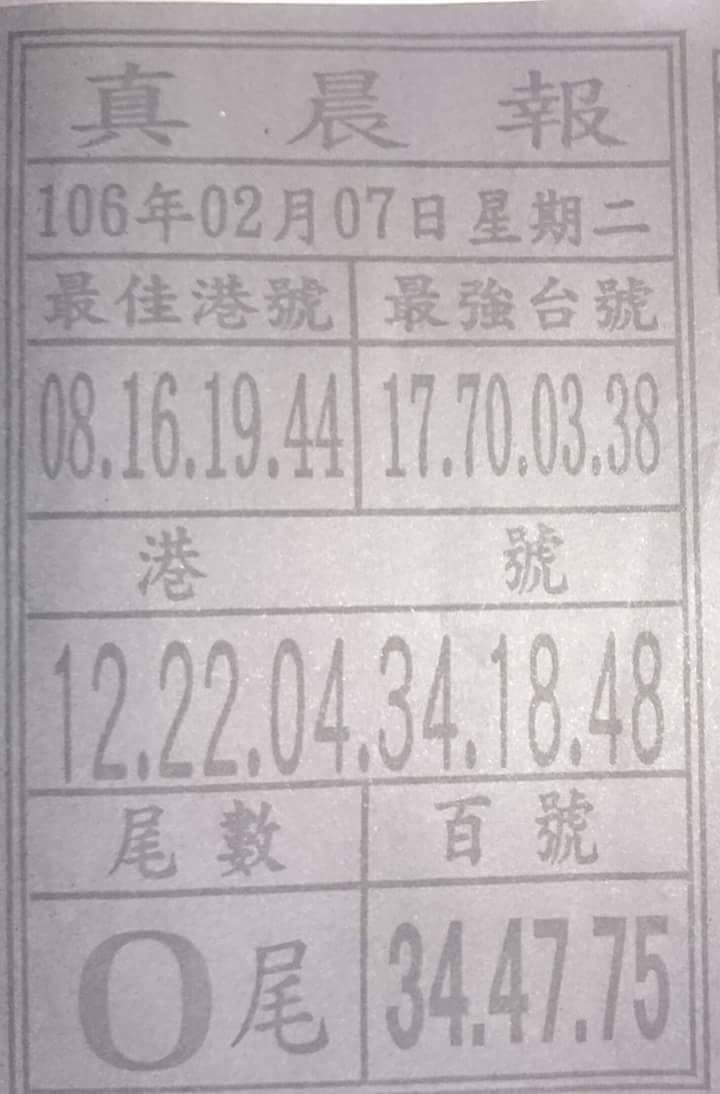 真晨報
106年02月07日星期二
最佳港號 最強台號
08.16.19.44 17.70.03.38
港號
12.22.04.34.18.48
尾數 百號
O尾 34.47.75